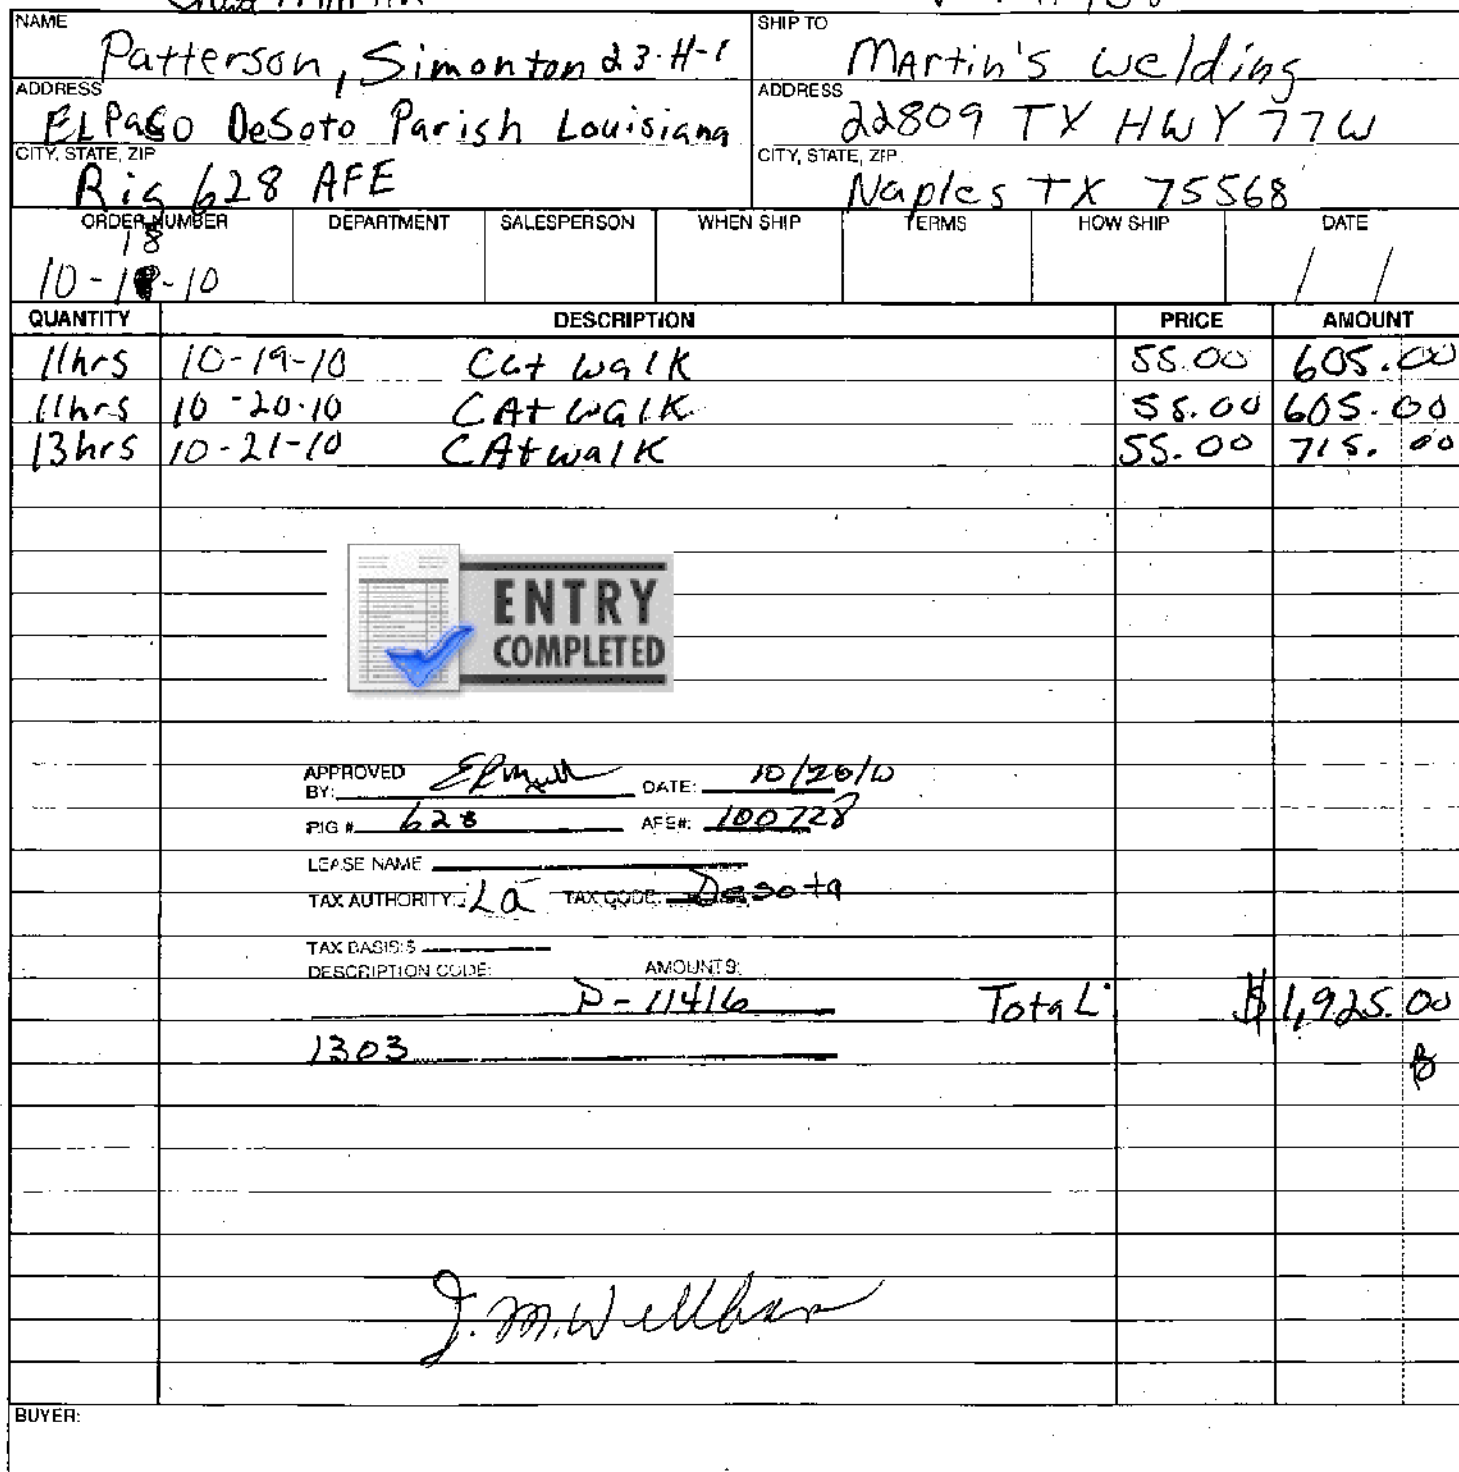 NAME SHIP TO
Patterson, Simonton 23-H-1 Martin's welding
ADDRESS ADDRESS
ELPASO DeSoto Parish Louisiana 22809 TX HWY 77W
CITY, STATE, ZIP CITY, STATE, ZIP
Rig 628 AFE Naples TX 75568
ORDER NUMBER DEPARTMENT SALESPERSON WHEN SHIP TERMS HOW SHIP DATE
18
10-1 -10 / /
QUANTITY DESCRIPTION PRICE AMOUNT
11hrs 10-19-10 Cat walk 55.00 605.00
11hrs 10-20-10 CAt walk 55.00 605.00
13hrs 10-21-10 CAtwalk 55.00 715.00
ENTRY
COMPLETED
APPROVED
BY: DATE: 10/26/10
RIG #. 628 AFE#: 100728
LEASE NAME
TAX AUTHORITY: La TAX CODE: Desota
TAX BASIS:$
DESCRIPTION CODE: AMOUNT $:
P-11416 Total $1,925.00
1303
J. M. Wellham
BUYER: